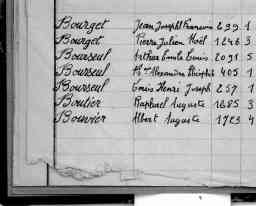 Bourget Jean Joseph Francois 299 1
Bourget Pierre Julien Noël 1246 3
Bourseul Arthur Emile Louis 2091 5
Bourseul Alexandre Théophile 405 1
Bourseul Louis Henri Joseph 257 1
Boutier Raphael Auguste 1685 3
Bouvier Albert Auguste 1729 4